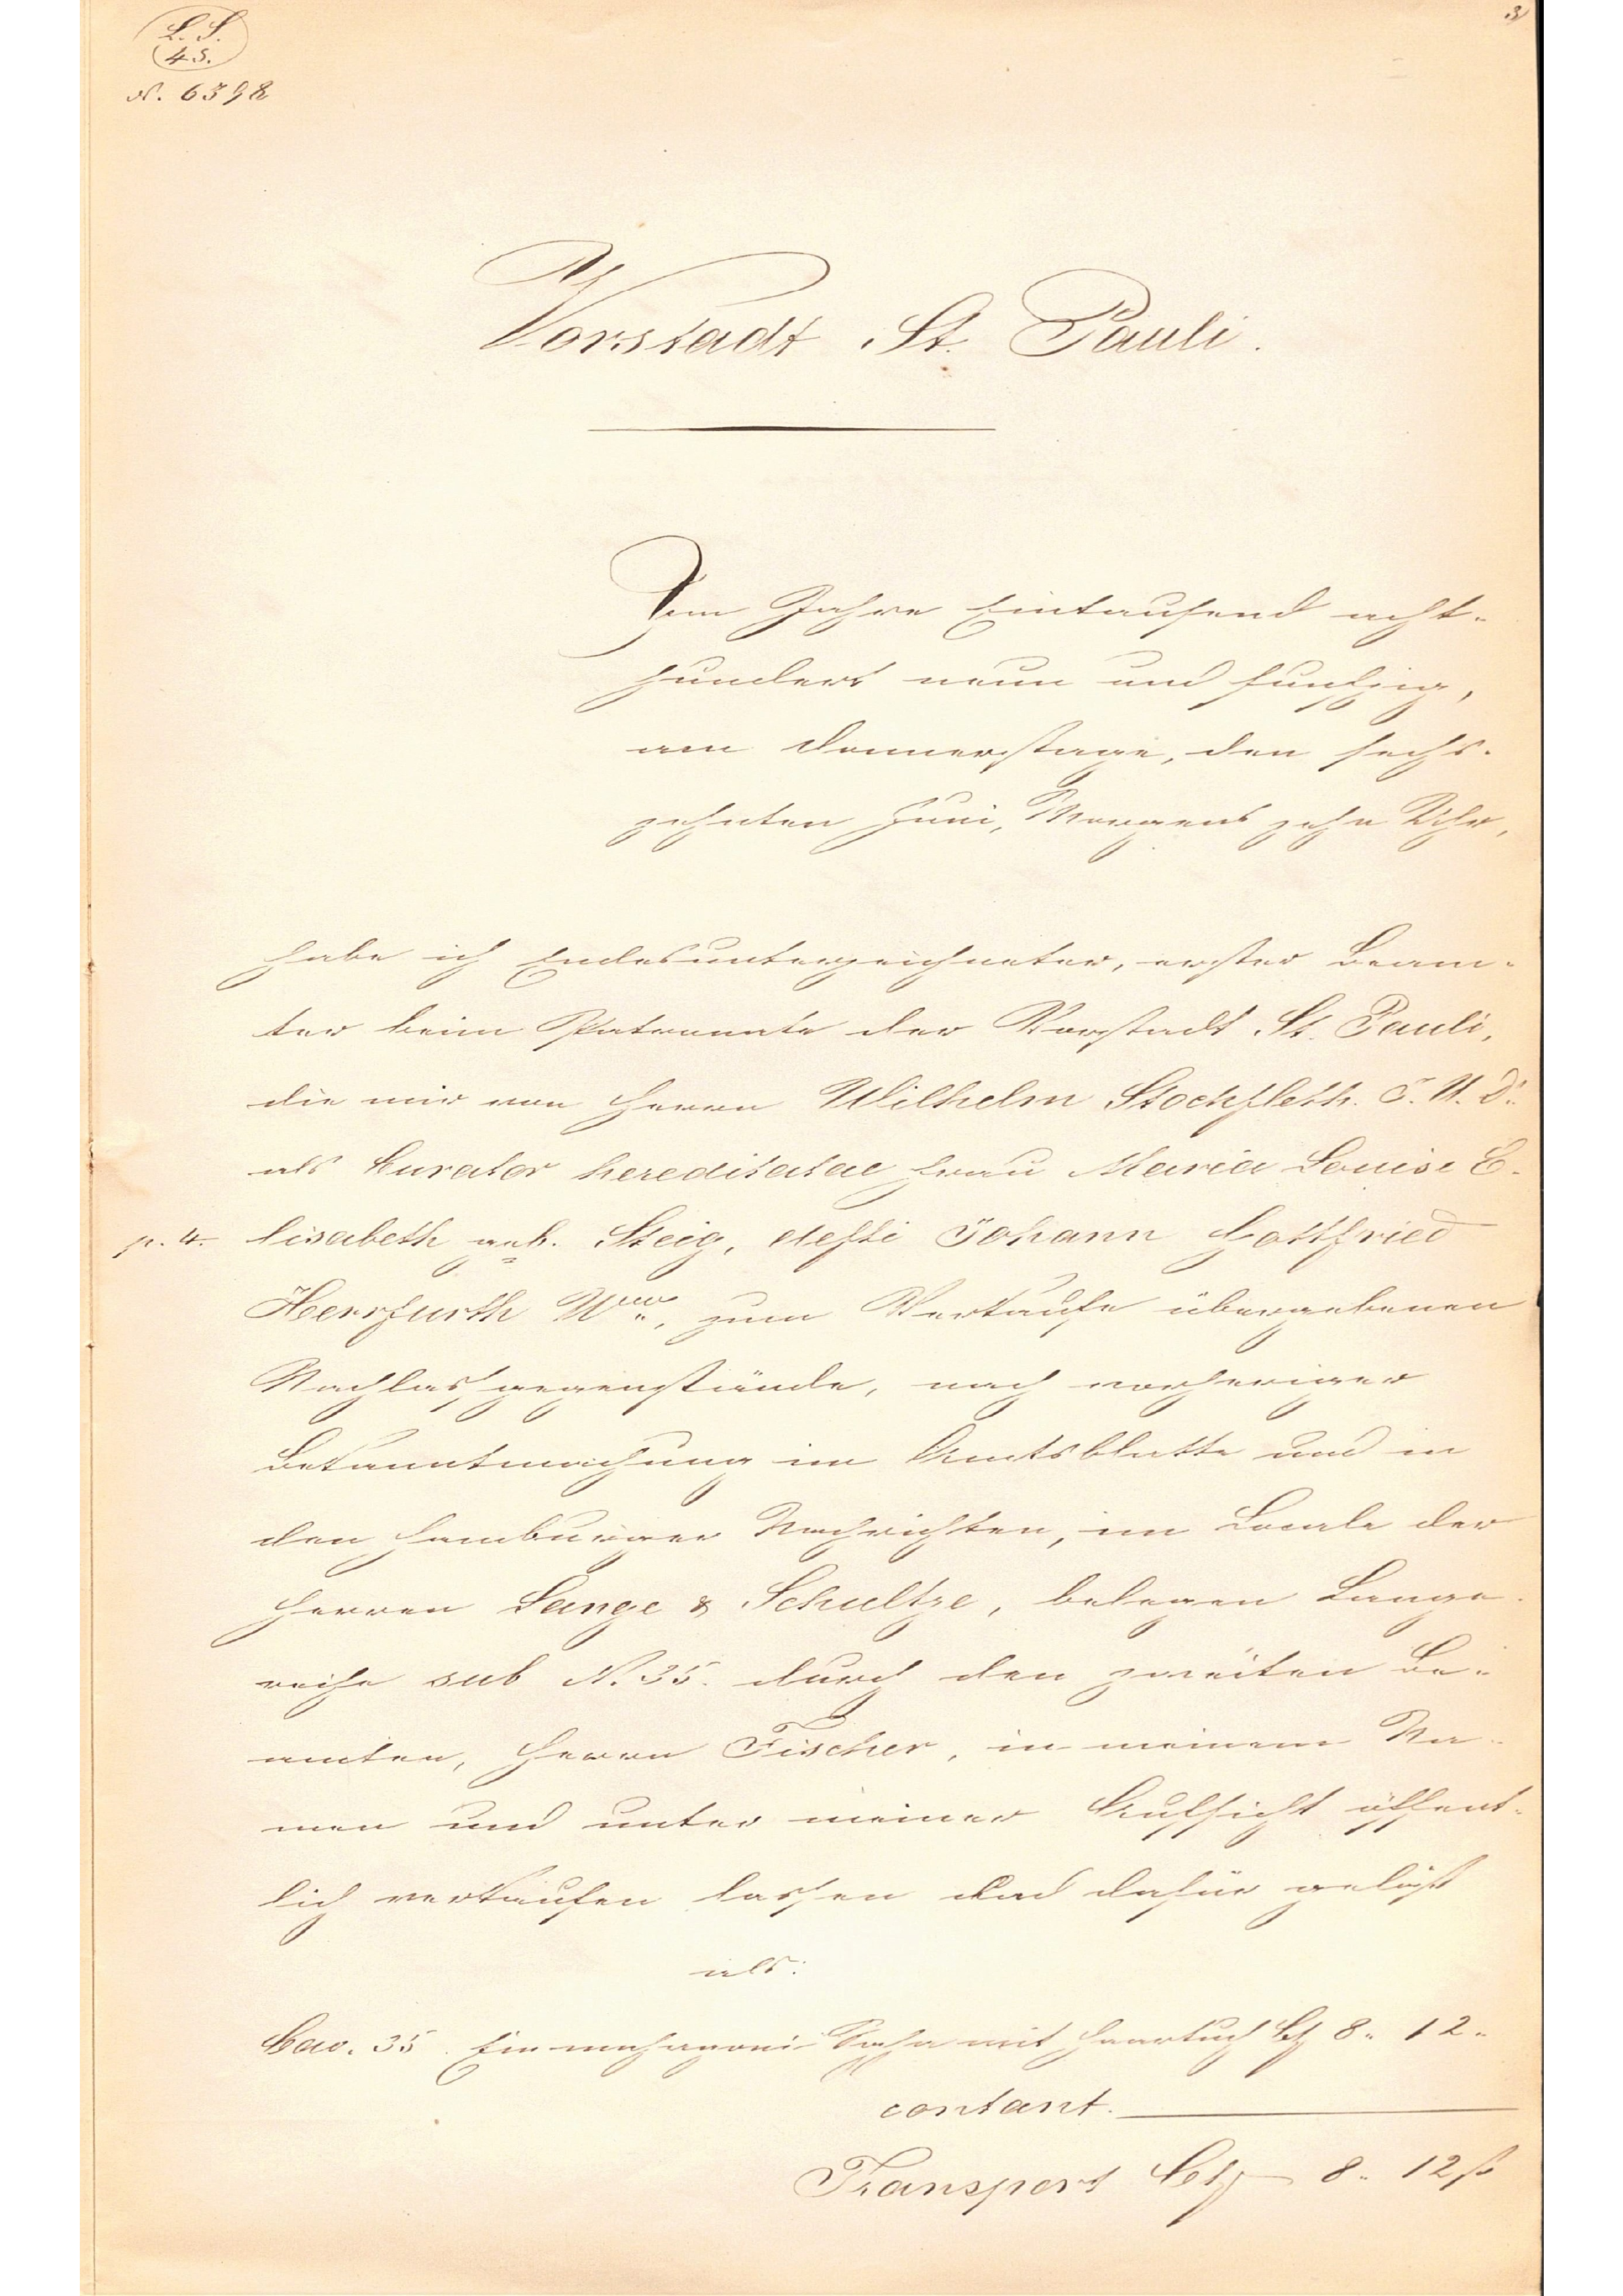 3
L. S.
4 S.
N. 6398
Vorstadt St. Pauli.
Im Jahre Eintausend acht-
hundert neun und funfzig,
am Donnerstage, den sechs-
zehnten Juni, Morgens zehn Uhr,
habe ich Endesunterzeichneter, erster Beam-
ter beim Patronate der Vorstadt St. Pauli,
die mir von Herrn Wilhelm Stockfleth. J. U. Dr.
als Curator hereditatae Frau Maria Louise E-
p. 4. lisabeth geb. Steig, defti Johann Gottfried
Herrfurth Wwe, zum Verkaufe übergebenen
Nachlassgegenstände, nach vorheriger
Bekanntmachung im Amtsblatte und in
den Hamburger Nachrichten, im Locale der
Herren Lange & Schultze, belegen Lange-
reihe sub N. 35. durch den zweiten Be-
amten, Herrn Fischer, in meinem Na-
men und unter meiner Aufsicht öffent-
lich verkaufen lassen und dafür gelöst
als:
Cav. 35. Ein mahagoni Sopha mit Haartuch C 8. 12.
contant.
Transport C 8. 12 ß